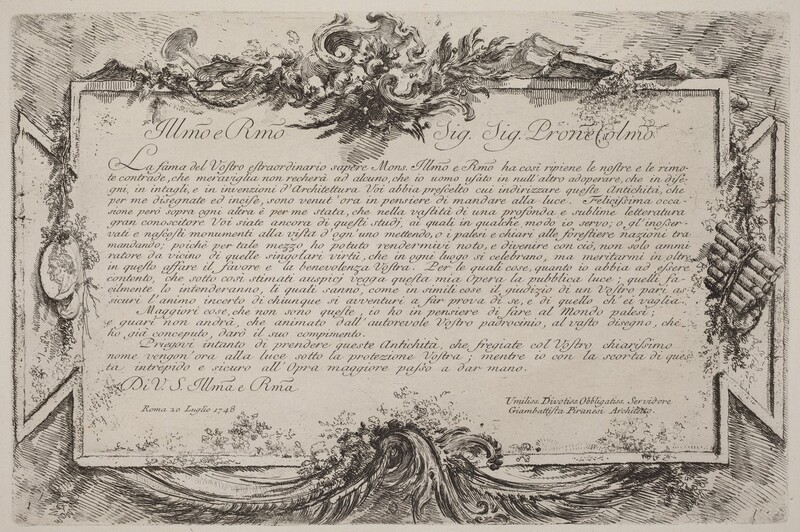 Illm̃o e Rm̃o Sig. Sig. Prone Colmo
La fama del Vostro estraordinario sapere Mons. Illm̃o e Rm̃o ha così ripiene le nostre e le rimo-
te contrade, che meraviglia non recherà ad alcuno, che io uomo usato in null'altro adoperare, che in dise-
gni, in intagli, e in invenzioni d'Architettura Voi abbia prescelto cui indirizzare queste Antichità, che
per me disegnate ed incise, sono venut' ora in pensiere di mandare alla luce. Felicissima occa-
sione però sopra ogni altra è per me stata, che nella vastità di una profonda e sublime letteratura
gran conoscitore Voi siate ancora di questi studj, ai quali in qualche modo io servo; o gl'inosser-
vati e nascosti monumenti alla vista d'ogni uno mettendo, o i palesi e chiari alle forestiere nazioni tra-
mandando; poichè per tale mezzo ho potuto rendermivi noto, e divenire con ciò, non solo ammi-
ratore da vicino di quelle singolari virtù, che in ogni luogo si celebrano, ma meritarmi in oltre
in questo affare il favore e la benevolenza Vostra. Per le quali cose, quanto io abbia ad essere
contento, che sotto così stimati auspicj vegga questa mia Opera la pubblica luce; quelli fa-
cilmente lo intenderanno, li quali sanno, come in simili cose il giudizio di uno Vostro pari as-
sicuri l'animo incerto di chiunque si avventuri a far prova di se, e di quello ch' ei vaglia.
Maggiori cose, che non sono queste, io ho in pensiere di fare al Mondo palesi;
e guari non andrà, che animato dall'autorevole Vostro padrocinio, al vasto disegno, che
ho già concepito, darò il suo compimento.
Priegovi intanto di prendere queste Antichità, che fregiate col Vostro chiarissimo
nome vengon' ora alla luce sotto la protezione Vostra; mentre io con la scorta di ques-
ta intrepido e sicuro all'Opra maggiore passo a dar mano.
Di V. S. Illm̃a e Rm̃a
Roma 20 Luglio 1748
Umiliss. Divotiss. Obbligatiss. Servidore
Giambattista Piranesi Architetto.